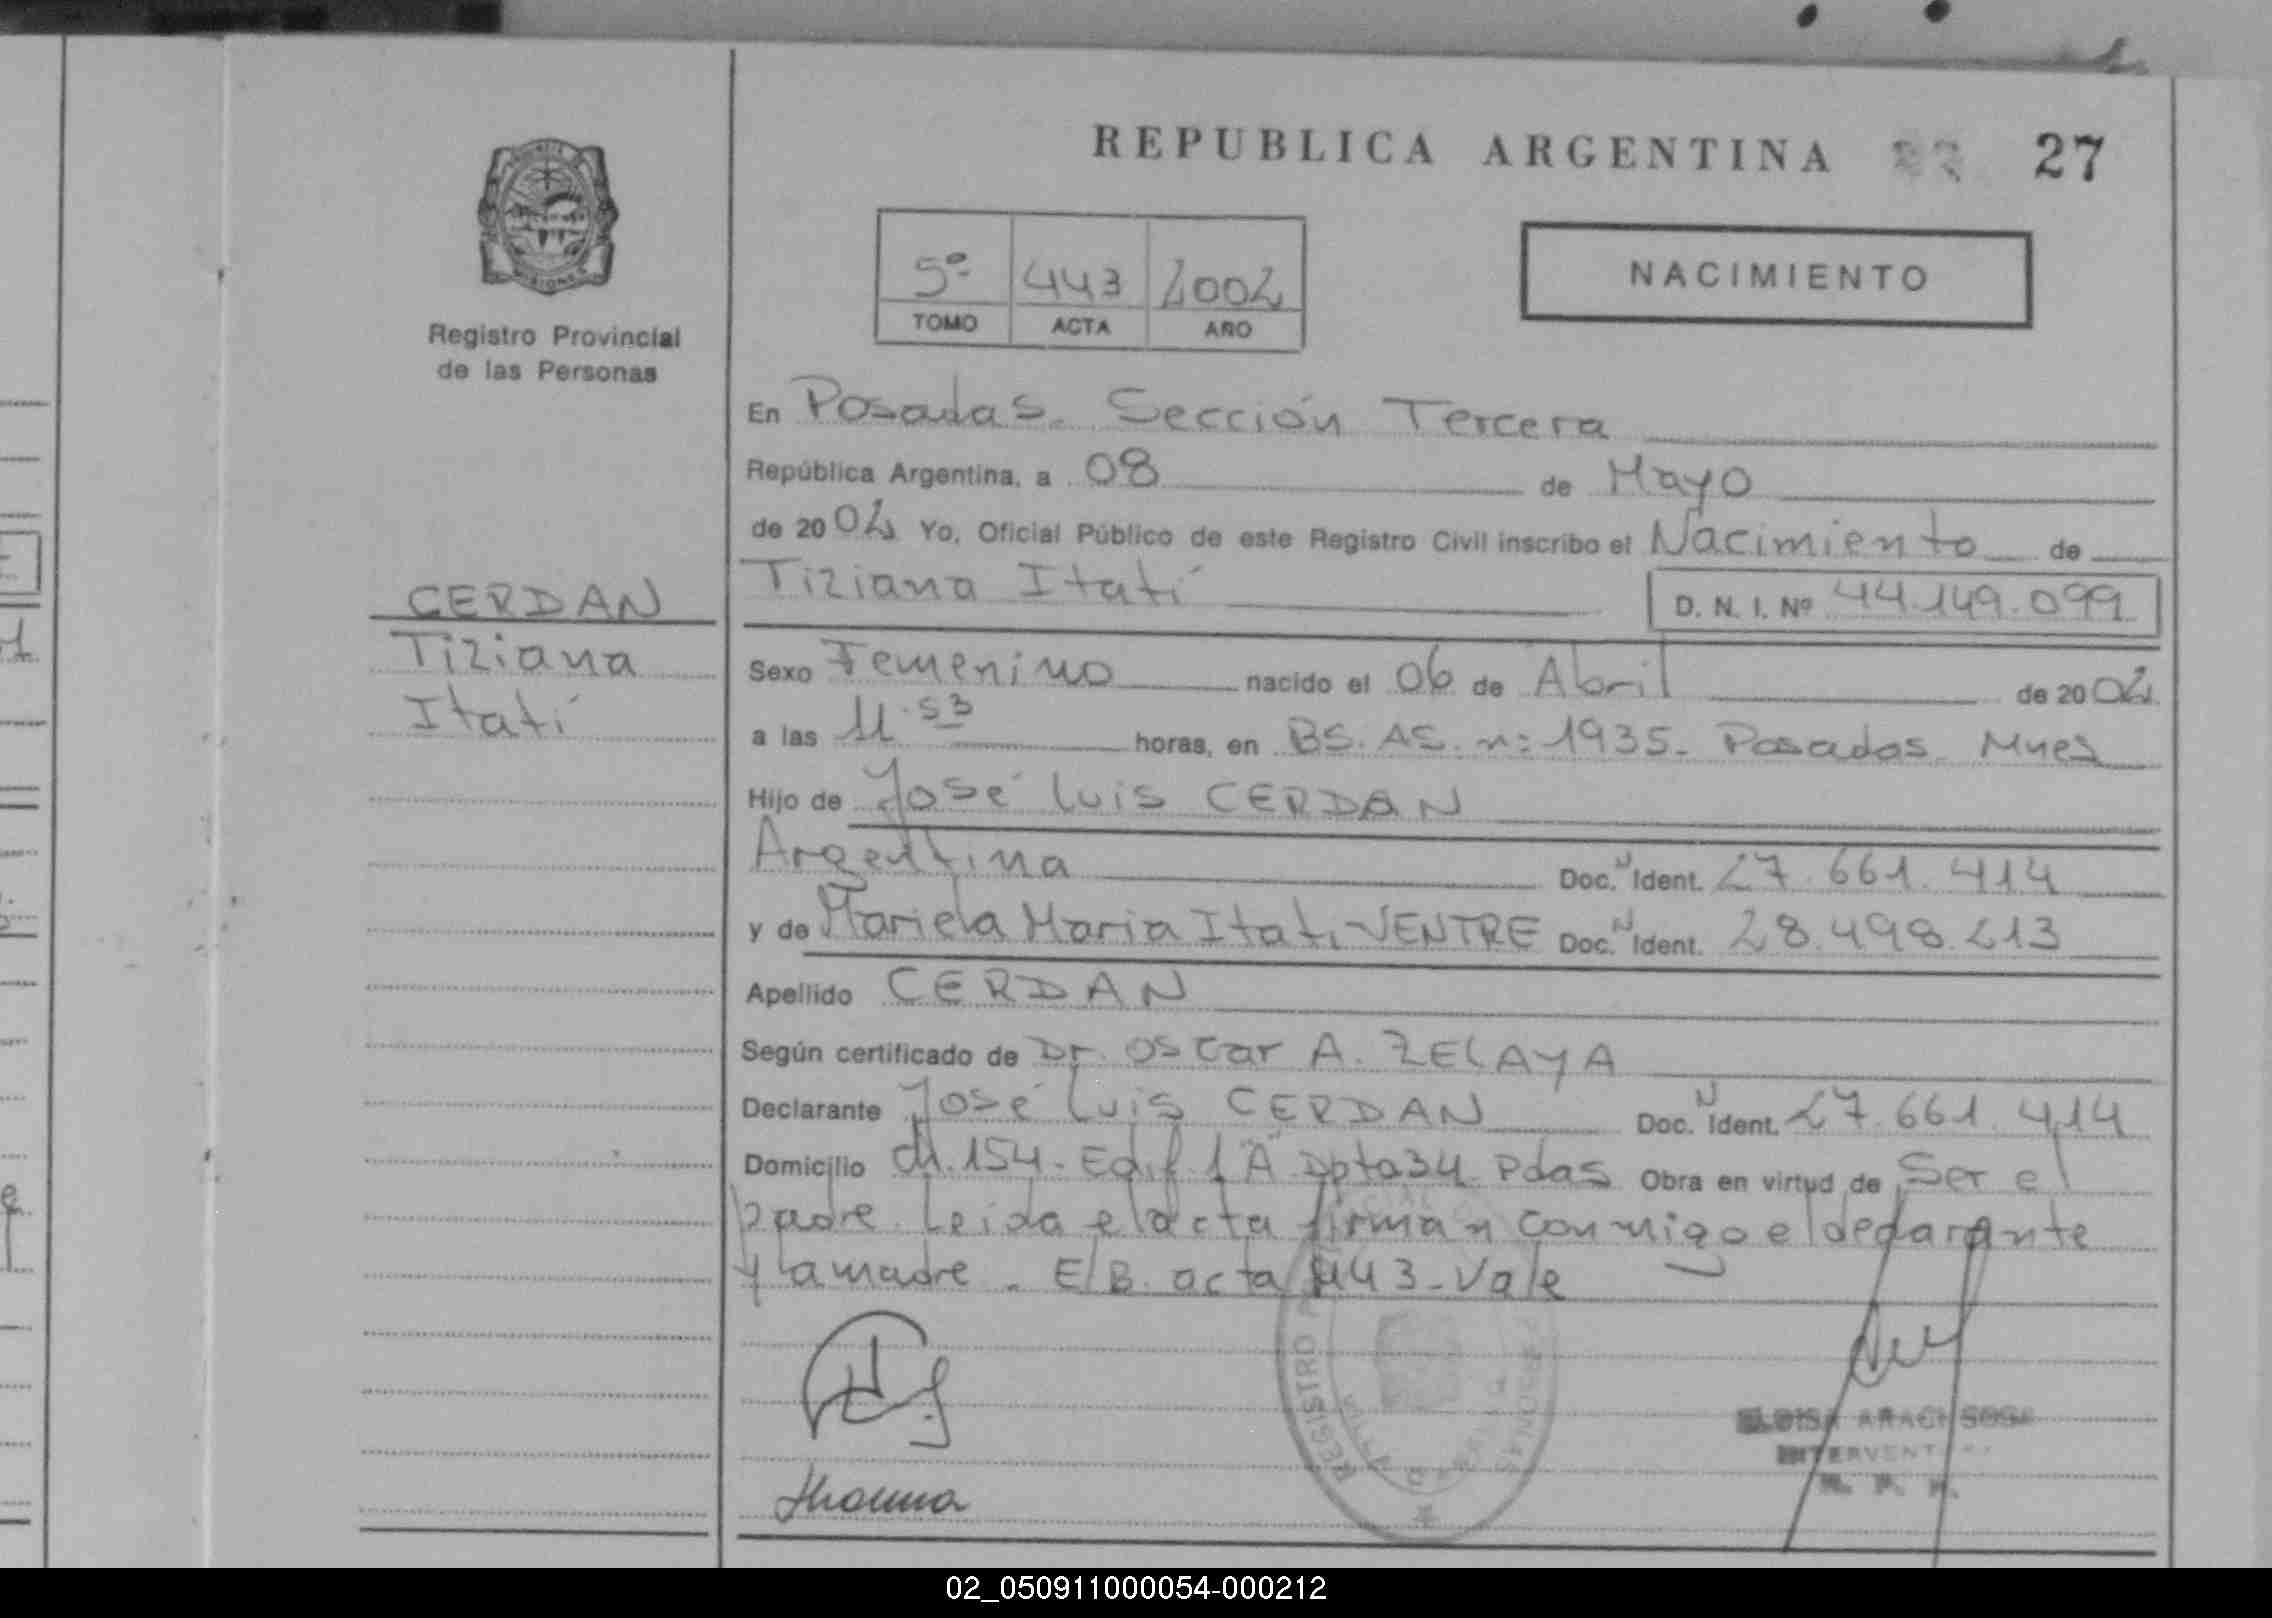 REPUBLICA ARGENTINA 27
5º 443 2002
TOMO ACTA AÑO
NACIMIENTO
Registro Provincial
de las Personas
En Posadas. Sección Tercera
República Argentina, a 08 de Mayo
de 2002 Yo, Oficial Público de este Registro Civil inscribo el Nacimiento de
Tiziana Itatí D. N. I. Nº 44.149.099
CERDAN
Tiziana
Itatí
Sexo Femenino nacido el 06 de Abril de 2002
a las 11.53 horas, en BS. AS. nº 1935. Posadas. Mnes
Hijo de José Luis CERDAN
Argentina Doc. N Ident. 27.661.414
y de Mariela Maria Itati VENTRE Doc. N Ident. 28.498.213
Apellido CERDAN
Según certificado de Dr. Oscar A. ZELAYA
Declarante José Luis CERDAN Doc. N Ident. 27.661.414
Domicilio ch. 154. Edif. 1 "A" Dpto 34 Pdas Obra en virtud de Ser el
padre. Leida el acta firman conmigo el declarante
y la madre. E/B. acta 443 - Vale
REGISTRO
PERSONAS
VILLA
INTERVENT
02_050911000054-000212